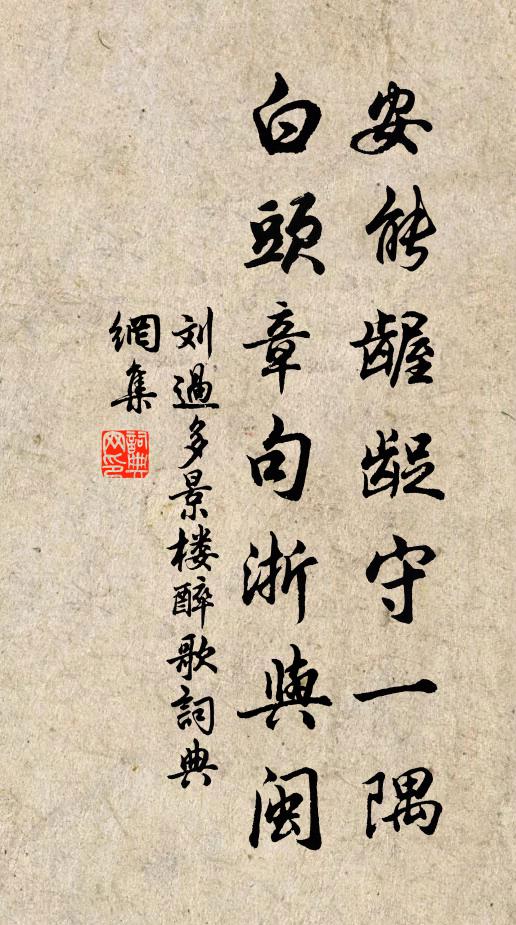 安能齷齪守一隅
白頭章句浙與閩
刘過多景楼醉歌詞典
網集
詞典
网印